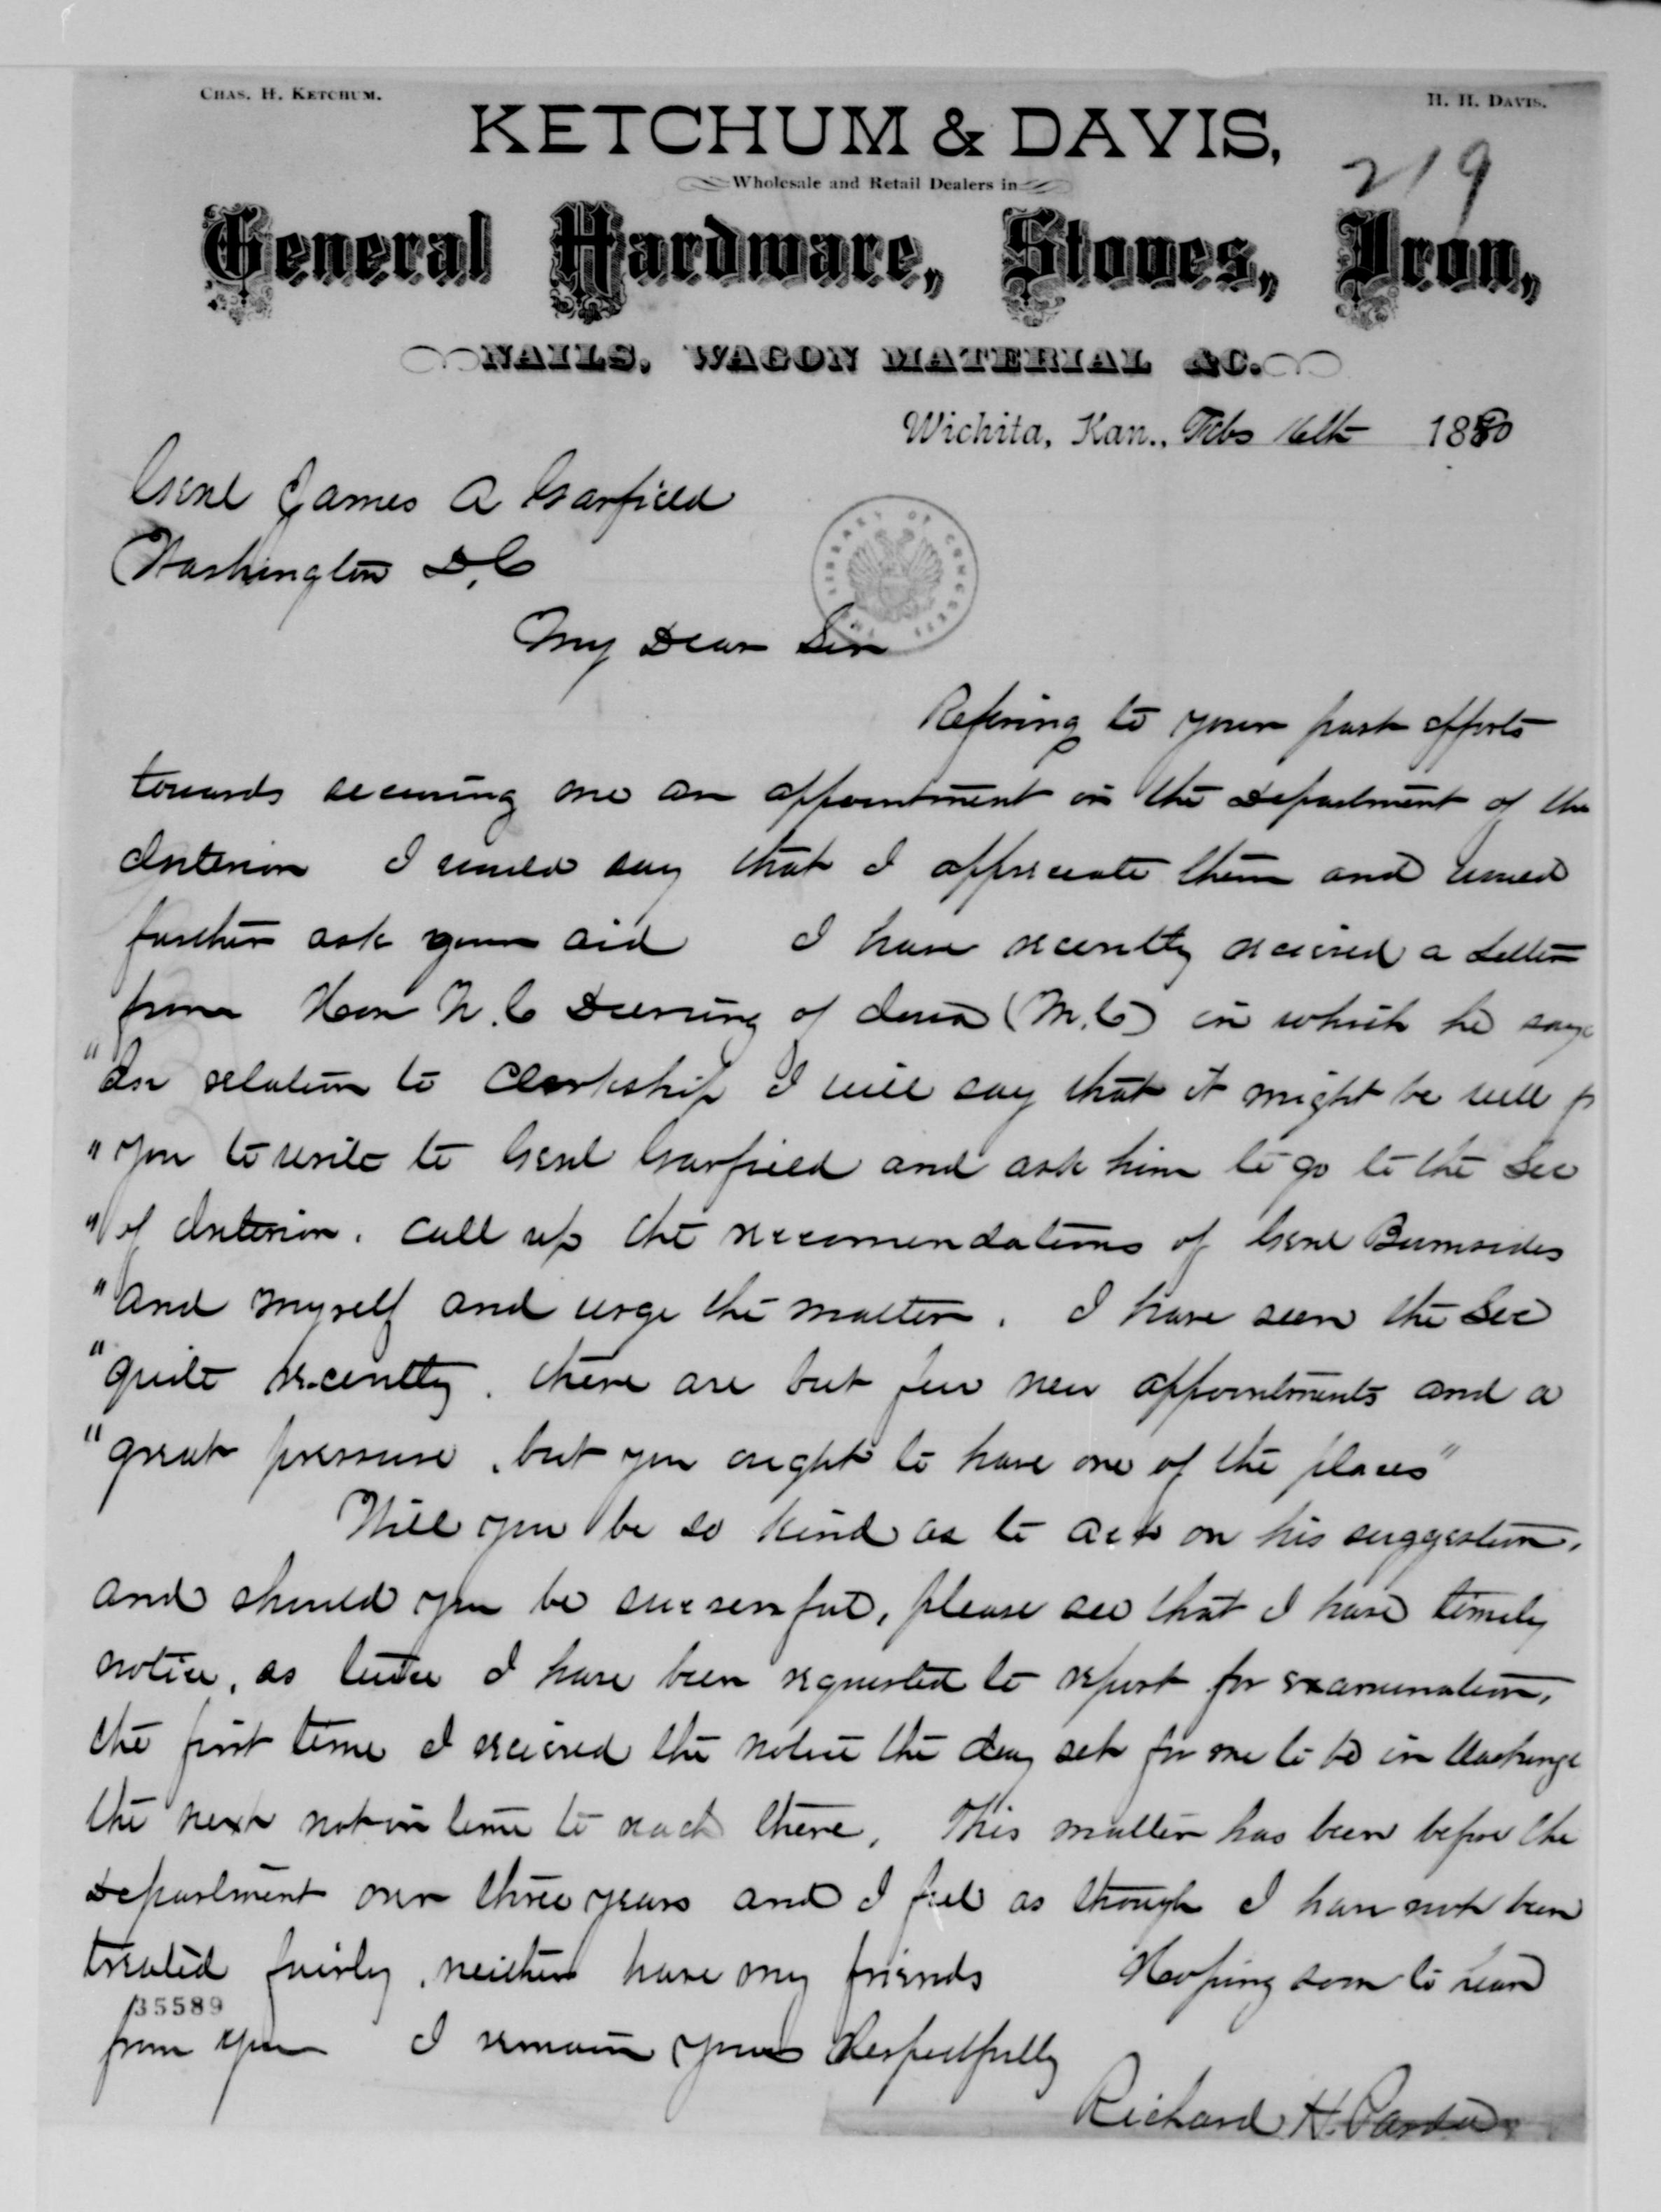 CHAS. H. KETCHUM.
H. H. DAVIS.
KETCHUM & DAVIS,
219
Wholesale and Retail Dealers in
General Hardware, Stoves, Iron,
NAILS, WAGON MATERIAL &C.
Wichita, Kan., Feb 16th 1880
Genl James A Garfield
Washington D.C
THE LIBRARY OF CONGRESS
My Dear Sir
Refering to your past efforts
towards securing me an appointment in the Department of the
Interior I would say that I appreciate them and would
further ask your aid I have recently recieved a letter
from Hon N. C Deering of Iowa (M.C) in which he says
"In relation to Clerkship I will say that it might be well
"you to write to Genl Garfield and ask him to go to the Sec
"of Interior. call up the reccomendations of Genl Burnsides
"and myself and urge the matter. I have seen the Sec
"quite recently. there are but few new appointments and a
"great pressure, but you ought to have one of the places"
Will you be so kind as to act on his suggestion,
and should you be successful, please see that I have timely
notice, as twice I have been requested to report for examination,
the first time I recieved the notice the day set for me to be in Washingt
the next not in time to reach there. This matter has been before the
Department over three years and I feel as though I have not been
treated fairly, neither have my friends Hoping soon to hear
35589
from you I remain yours Respectfully
Richard H.